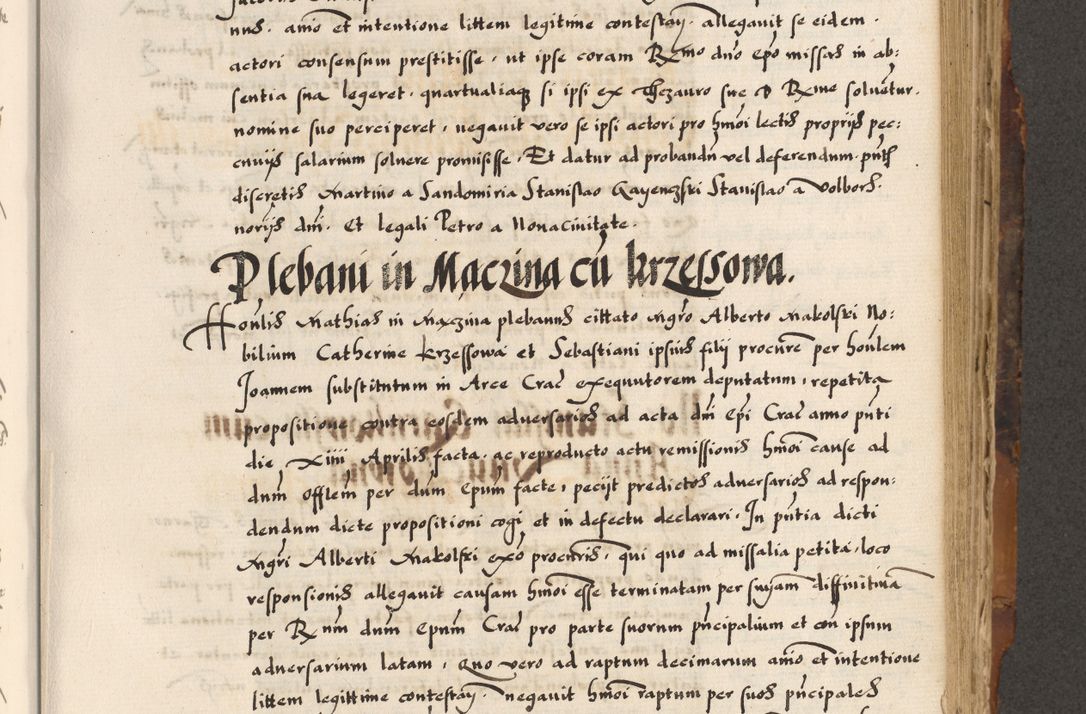 nus. aīo et intentione littem legitime contestaṅ. allegauit se eidem.
actori consensum prestitisse, ut ipse coram Rmo dno Epo missas in ab:
sentia sua legeret, quartualiaq si ipsi ex Thezauro sue D Rme soluētur.
nomine suo perciperet, negauit vero se ipsi actori pro hmoi lectis proprijs pec:
cunijs salarium soluere promisisse, Et datur ad probandū vel deferendum pñtḣ
discretis Martino a Sandomiria Stanislao Gayenczski Stanislao a Volbors.
norijs dni. Et legali Petro a Nonaciuitate.
Plebani in Maczina cū krzessowa.
Honlis Mathias in Maczina plebanus cittato Mgro Alberto Makolski No:
bilium Catherine krzessowa et Sebastiani ipsius filij procure per honlem
Joannem substitutum in Arce Crac exequutorem deputatum, repetita
propositione contra eosdem aduersarios ad acta dni Epi Crac anno pñti
die, Xiiii Aprilis facta, ac reproducto actu remissionis hmoi cause ad
dnm offlem per dum Epum facte, pecijt predictos aduersarios ad respon:
dendum dicte propositioni cogi et in defectu declarari, In pñtia dicti
Mgri Alberti Makolski exo procuris, qui quo ad missalia petita, loco
responsionis allegauit causam hmoi esse terminatam per sniam diffinitiua
per R nm dum Epum Crac pro parte suorum pñcipalium et con ipsum
aduersarium latam, Quo vero ad raptum decimarum aīo et intentione
littem legittime contestaṅ, negauit hmoi raptum per suos pñcipales